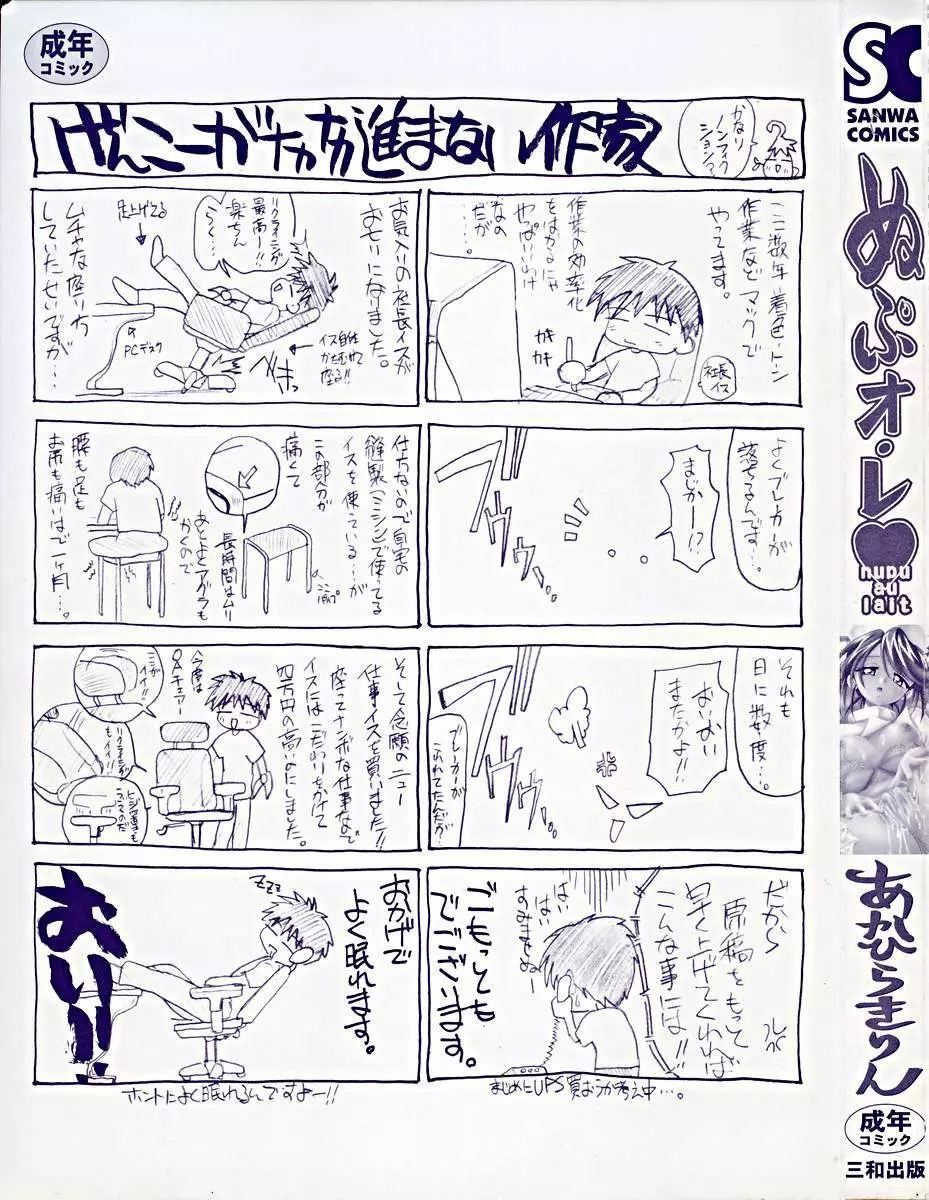 成年
コミック
げんこーがナカナカ進まない作家
かなり
ノンフィク
ション
ここ数年着色・トン
作業など マックで
やってます。
作業の効率化
をはかるにゃ
やっぱいいわけ
なの
だが
………
カキ
カキ
社長
イス
よくブレーカーが
落ちるんです…。
まじかー!?
ブッ
それも
日に数度…。
おいおい
またかよ!!
ブツッ
ブレーカーが
だから
原稿をもって
早く上げてくれれば
こんな事には!!
はい
はい
すみません
ごもっとも
でございます。
まじめにUPS買おうか考え中…。
お気入りの社長イスが
おむりになりました。
リクライニングが
最高ー!!
楽ちん
く〜〜
足上げてる
ムチャな座り方
していたせいですが…
PCデスク
イス自体
かたむけて
座る!!
仕方ないので自宅の
縫製(ミシン)で使ってる
イスを使っている…が
この部分が
痛くて
長時間はムリ
あとよくアグラも
かくので
腰も足も
お尻も痛いほで一ヶ月…。
そして念願のニュー
仕事イスを買いました!!
座ってナンボな仕事なので
イスにはこだわりをかけて
四万円の高いにしました。
今度は
OAチェアー
ここが
イイ!!
リクライニングが
もイイ!!
ヒジ置きも
おかげで
よく眠れます。
zzz
おい!!
ホントによく眠れるんですよー!!
SC
SANWA
COMICS
ぬぷオ・レ♥
nupu
au
lait
あかひらきりん
成年
コミック
三和出版